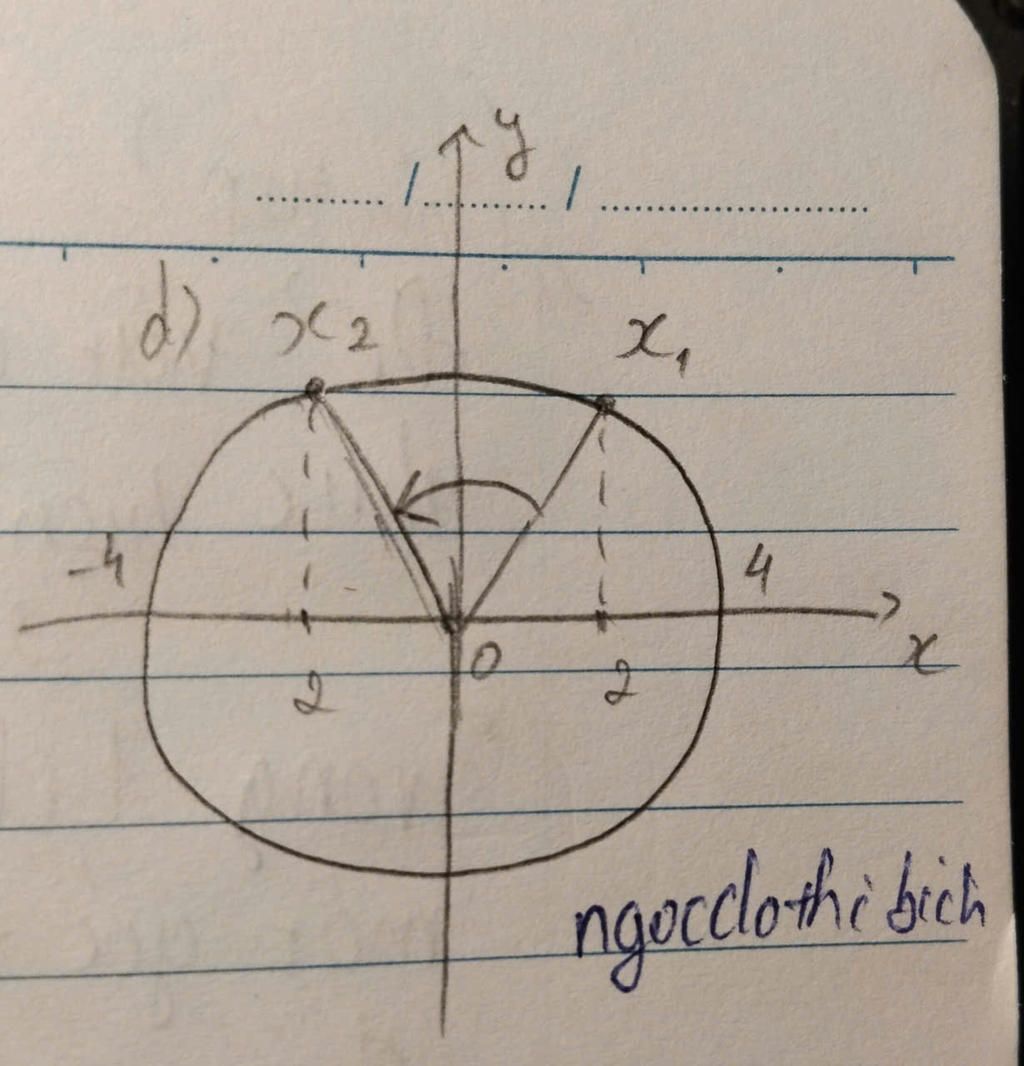 y
......... / ......... / ....................
d) x₂ x₁
-4 4
O x
2 2
ngocclothibich